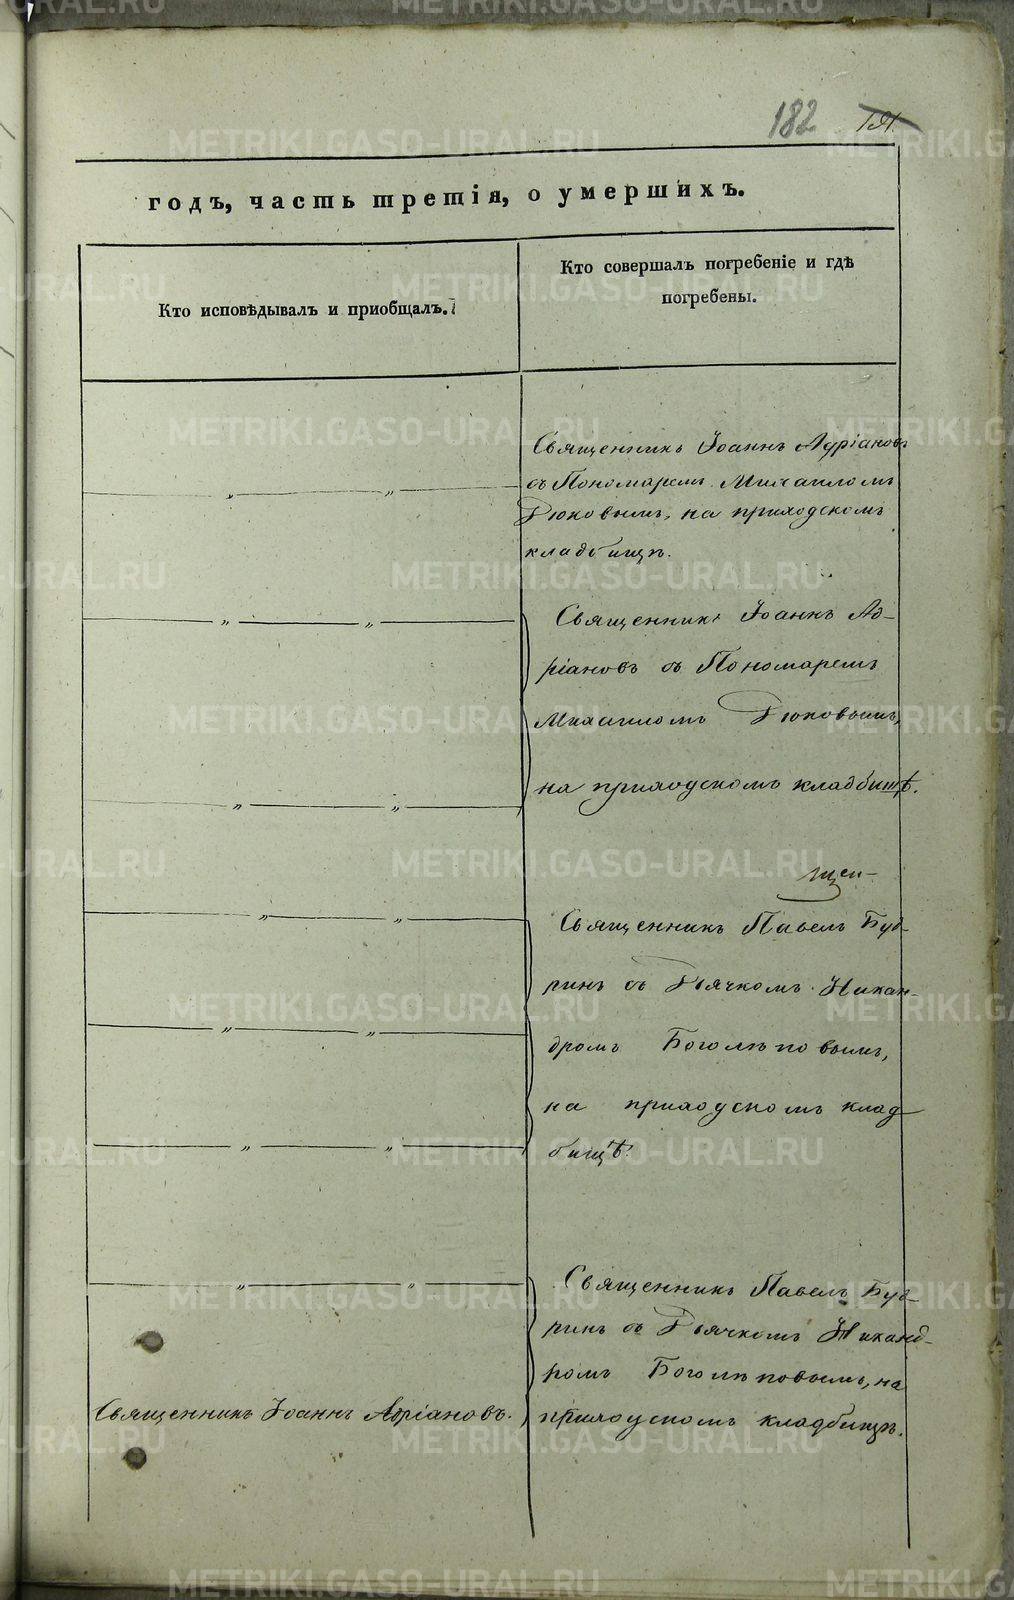 182
годъ, часть третія, о умершихъ.
Кто исповѣдывалъ и приобщалъ.
Кто совершалъ погребеніе и гдѣ
погребены.
Священникъ Іоаннъ Адріановъ
съ Пономаремъ Михаиломъ
Дюковымъ, на приходскомъ
кладбищѣ.
Священникъ Іоаннъ Ад-
ріановъ съ Пономаремъ
Михаиломъ Дюковымъ,
на приходскомъ кладбищѣ.
Священникъ Павелъ Буд-
ринъ съ Дьячкомъ Никан-
дромъ Боголѣповымъ,
на приходскомъ клад-
бищѣ.
Священникъ Павелъ Буд-
ринъ съ ДьячкомъНиканд-
ромъ Боголѣповымъ, на
Священникъ Іоаннъ Адріановъ.
приходскомъ кладбищѣ.
METRIKI.GASO-URAL.RU